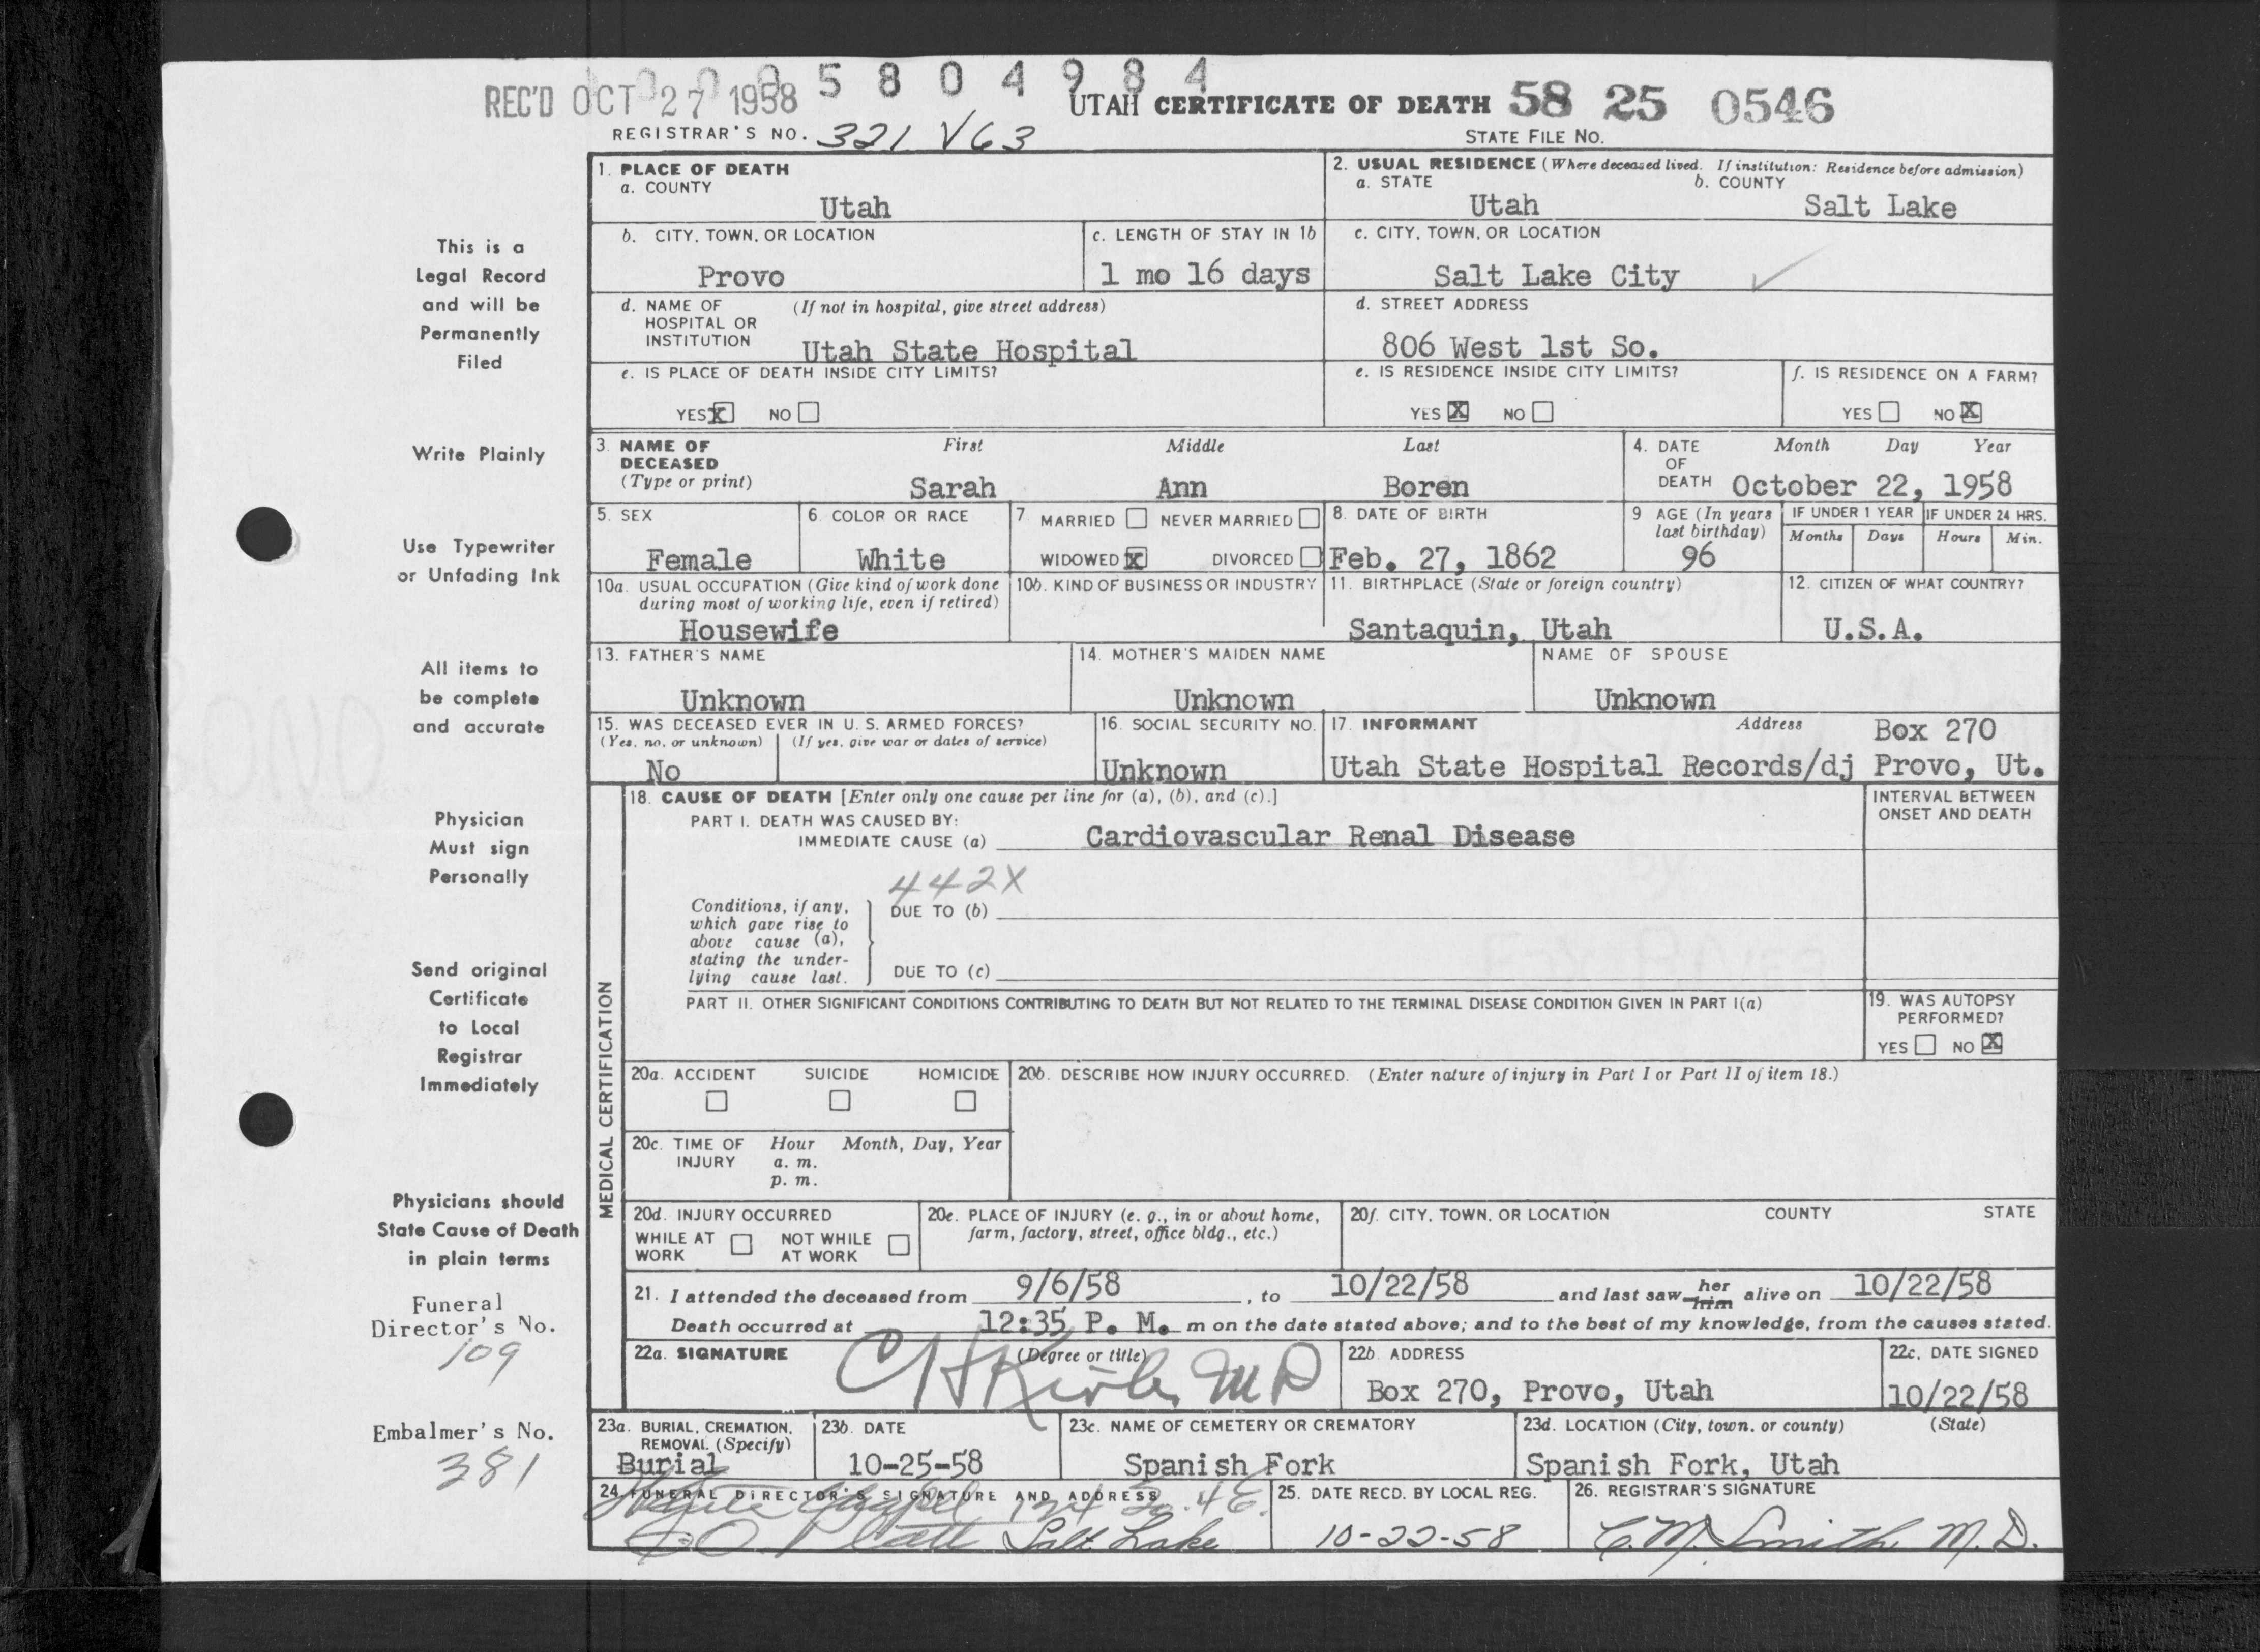 0005804984
REC'D OCT 27 1958 UTAH CERTIFICATE OF DEATH 58 25 0546
REGISTRAR'S NO. 321 V63 STATE FILE NO.
This is a
Legal Record
and will be
Permanently
Filed
Write Plainly
Use Typewriter
or Unfading Ink
All items to
be complete
and accurate
Physician
Must sign
Personally
Send original
Certificate
to Local
Registrar
Immediately
Physicians should
State Cause of Death
in plain terms
Funeral
Director's No.
109
Embalmer's No.
381
1. PLACE OF DEATH
a. COUNTY
Utah
2. USUAL RESIDENCE (Where deceased lived. If institution: Residence before admission)
a. STATE b. COUNTY
Utah Salt Lake
b. CITY, TOWN, OR LOCATION
Provo
c. LENGTH OF STAY IN 1b
1 mo 16 days
c. CITY, TOWN, OR LOCATION
Salt Lake City
d. NAME OF (If not in hospital, give street address)
HOSPITAL OR
INSTITUTION
Utah State Hospital
d. STREET ADDRESS
806 West 1st So.
e. IS PLACE OF DEATH INSIDE CITY LIMITS?
YES X NO
e. IS RESIDENCE INSIDE CITY LIMITS?
YES X NO
f. IS RESIDENCE ON A FARM?
YES NO X
3. NAME OF First Middle Last
DECEASED
(Type or print)
Sarah Ann Boren
4. DATE Month Day Year
OF
DEATH October 22, 1958
5. SEX
Female
6. COLOR OR RACE
White
7. MARRIED NEVER MARRIED
WIDOWED X DIVORCED
8. DATE OF BIRTH
Feb. 27, 1862
9 AGE (In years
last birthday)
96
IF UNDER 1 YEAR IF UNDER 24 HRS.
Months Days Hours Min.
10a. USUAL OCCUPATION (Give kind of work done
during most of working life, even if retired)
Housewife
10b. KIND OF BUSINESS OR INDUSTRY
11. BIRTHPLACE (State or foreign country)
Santaquin, Utah
12. CITIZEN OF WHAT COUNTRY?
U.S.A.
13. FATHER'S NAME
Unknown
14. MOTHER'S MAIDEN NAME
Unknown
NAME OF SPOUSE
Unknown
15. WAS DECEASED EVER IN U. S. ARMED FORCES?
(Yes, no, or unknown) (If yes, give war or dates of service)
No
16. SOCIAL SECURITY NO.
Unknown
17. INFORMANT Address Box 270
Utah State Hospital Records/dj Provo, Ut.
MEDICAL CERTIFICATION
18. CAUSE OF DEATH [Enter only one cause per line for (a), (b), and (c).]
PART I. DEATH WAS CAUSED BY:
IMMEDIATE CAUSE (a) Cardiovascular Renal Disease
INTERVAL BETWEEN
ONSET AND DEATH
442X
Conditions, if any,
which gave rise to
above cause (a),
stating the under-
lying cause last.
DUE TO (b)
DUE TO (c)
PART II. OTHER SIGNIFICANT CONDITIONS CONTRIBUTING TO DEATH BUT NOT RELATED TO THE TERMINAL DISEASE CONDITION GIVEN IN PART I(a)
19. WAS AUTOPSY
PERFORMED?
YES NO X
20a. ACCIDENT SUICIDE HOMICIDE
20b. DESCRIBE HOW INJURY OCCURRED. (Enter nature of injury in Part I or Part II of item 18.)
20c. TIME OF Hour Month, Day, Year
INJURY a. m.
p. m.
20d. INJURY OCCURRED
WHILE AT NOT WHILE
WORK AT WORK
20e. PLACE OF INJURY (e. g., in or about home,
farm, factory, street, office bldg., etc.)
20f. CITY, TOWN, OR LOCATION COUNTY STATE
21. I attended the deceased from 9/6/58, to 10/22/58 and last saw her him alive on 10/22/58
Death occurred at 12:35 P. M. m on the date stated above; and to the best of my knowledge, from the causes stated.
22a. SIGNATURE (Degree or title)
MD
22b. ADDRESS
Box 270, Provo, Utah
22c. DATE SIGNED
10/22/58
23a. BURIAL, CREMATION,
REMOVAL (Specify)
Burial
23b. DATE
10-25-58
23c. NAME OF CEMETERY OR CREMATORY
Spanish Fork
23d. LOCATION (City, town, or county) (State)
Spanish Fork, Utah
24. FUNERAL DIRECTOR'S SIGNATURE AND ADDRESS
Salt Lake
25. DATE RECD. BY LOCAL REG.
10-22-58
26. REGISTRAR'S SIGNATURE
C. M. Smith M. D.